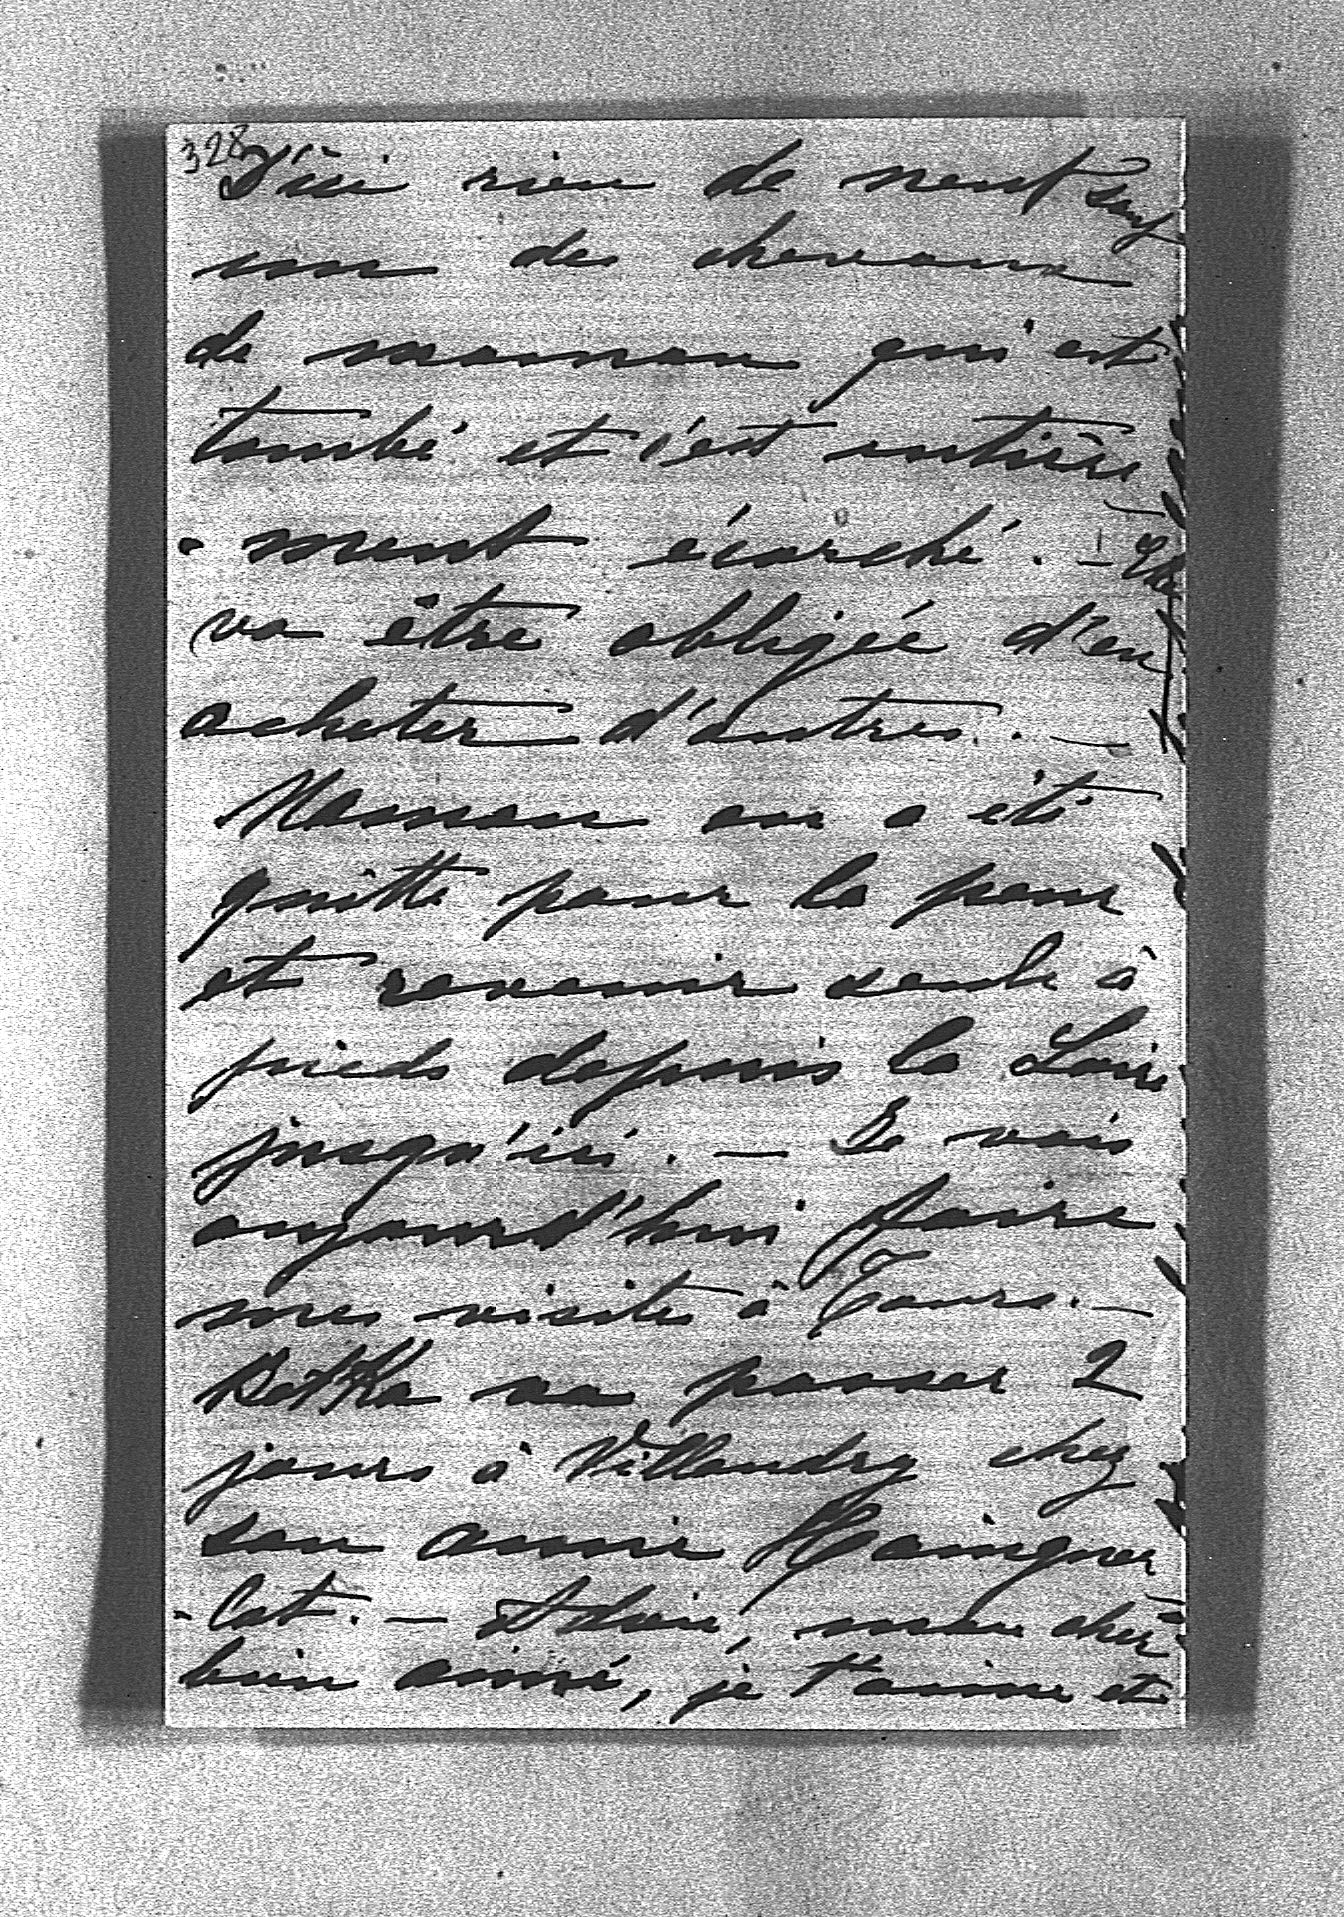 328
D'ici rien de neuf sauf
un des chevaux
de maman qui est
tombé et s'est entière
- ment écorché. - Elle
va être obligée d'en
acheter d'autres. -
Maman en a été
quitte pour la peur
et revenir seule à
pieds depuis la Loire
jusqu'ici. - Je vais
aujourd'hui faire
mes visites à Tours. -
va passer 2
jours à Villandry chez
son amie Hainguer
- lot. - Adieu, mon cher
bien aimé, je t'aime et